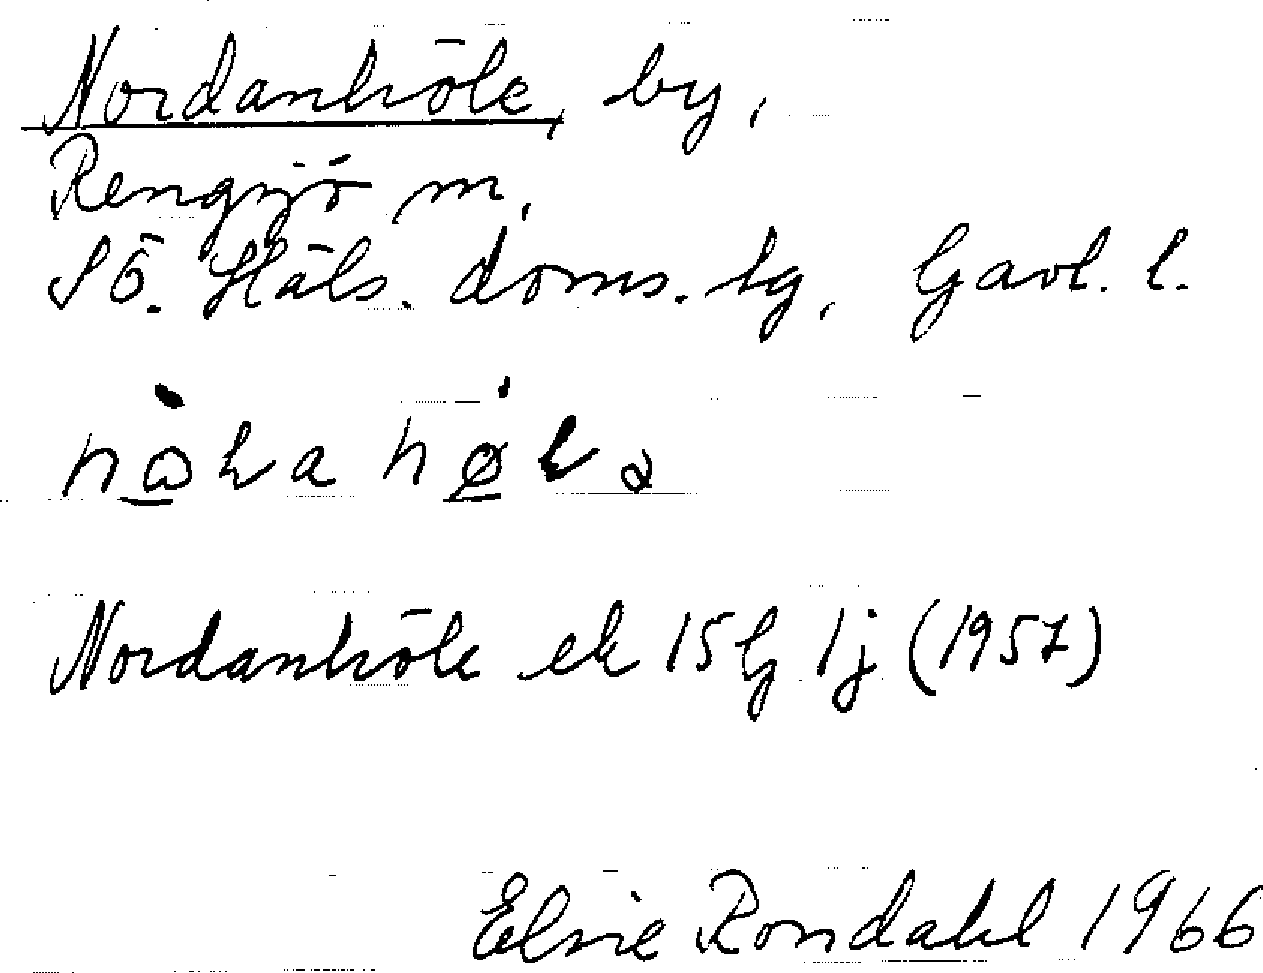 Nordanhöle, by,
Rengsjö sn,
Sö. Häls. doms. tg, Gävl. l.
Nordanhöle ek 15G 1j (1957)
Elsie Rondahl 1966